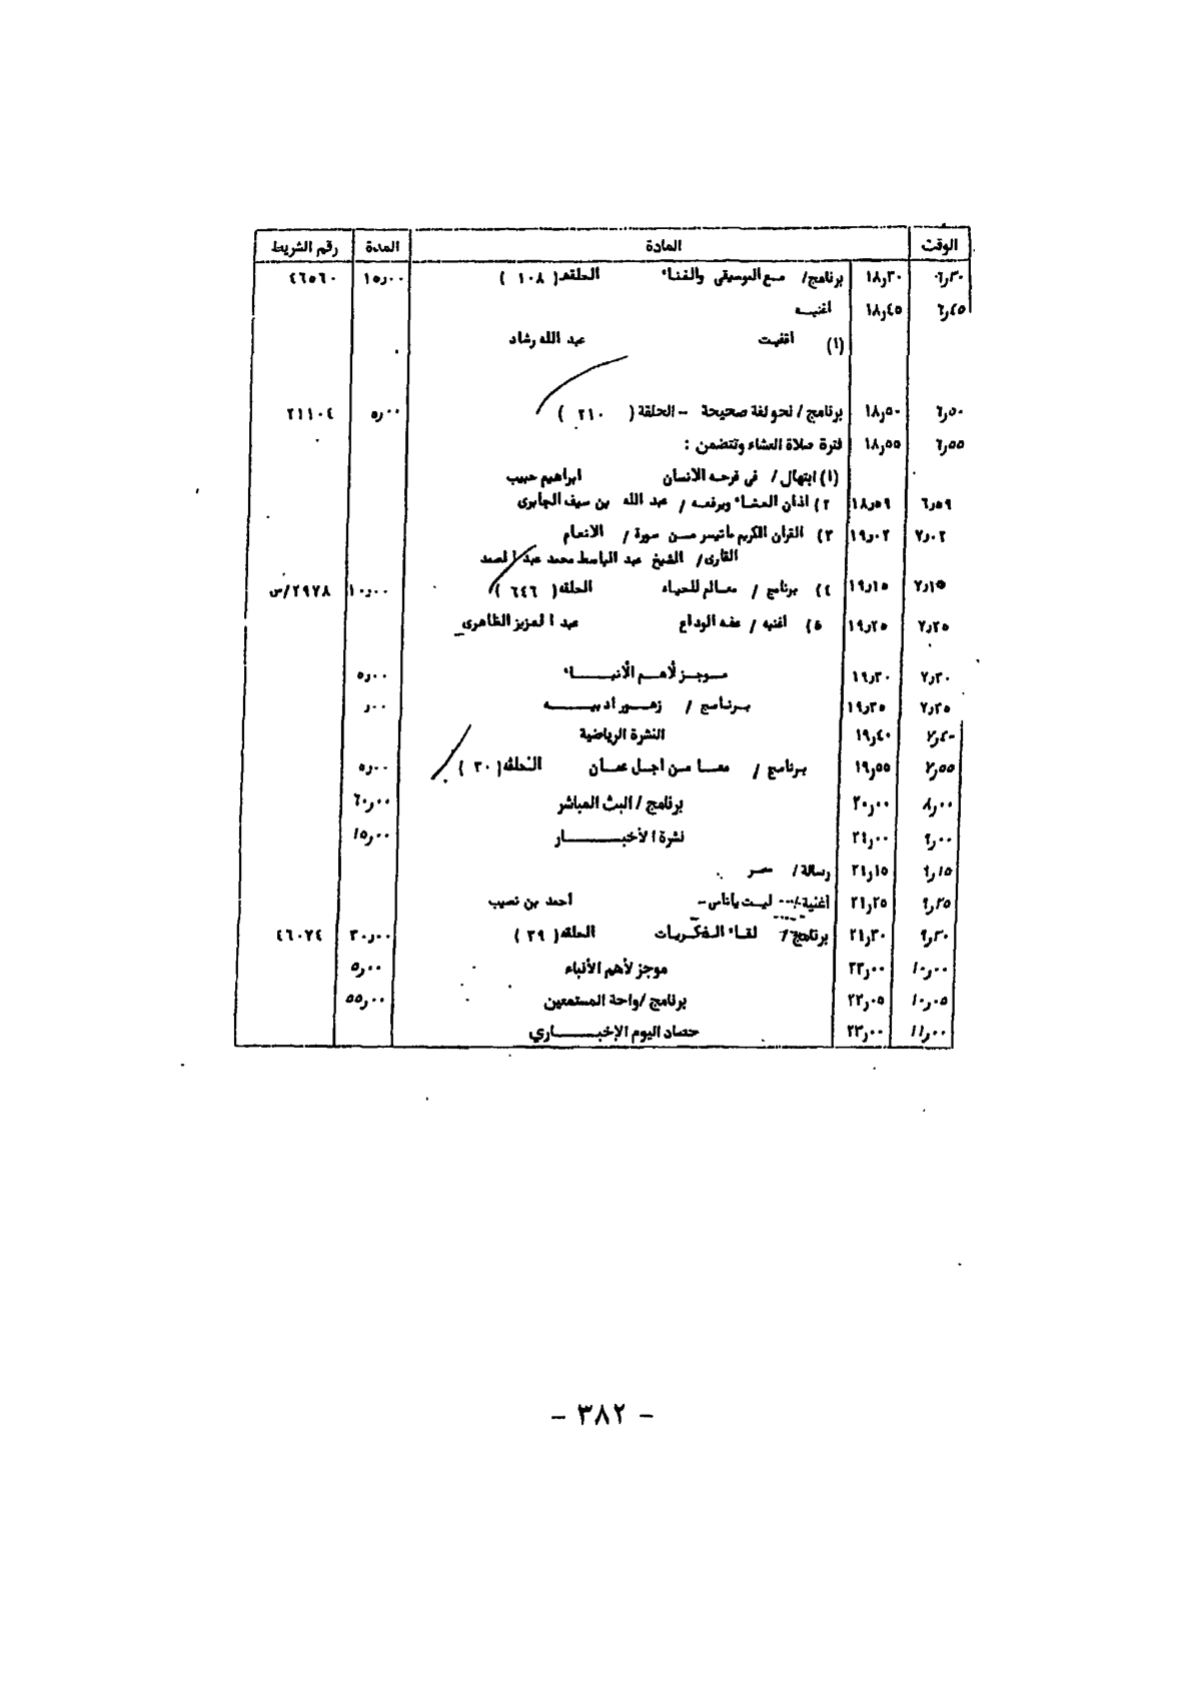 الوقت المادة المدة رقم الشريط
٦٫٣٠ ١٨٫٣٠ برنامج/ مع الموسيقى والغناء الحلقه( ١٠٨ ) ١٥٫٠٠ ٤٦٥٦٠
٦٫٤٥ ١٨٫٤٥ اغنيه
(١) اقفيت عبد الله رشاد
٦٫٥٠ ١٨٫٥٠ برنامج / نحو لغة صحيحة – الحلقة ( ٢١٠ ) ٥٫٠٠ ٢١١٠٤
٦٫٥٥ ١٨٫٥٥ فترة صلاة العشاء وتتضمن :
(١) ابتهال / فى فرحه الانسان ابراهيم حبيب
٦٫٥٩ ١٨٫٥٩ ٢) اذان العشاء ويرفعه / عبد الله بن سيف الجابرى
٧٫٠٢ ١٩٫٠٢ ٣) القران الكريم ماتيسر من سورة / الانعام
القارى/ الشيخ عبد الباسط محمد عبد الصمد
٧٫١٥ ١٩٫١٥ ٤) برنامج / معالم للحياه الحلقه( ٦٤٦ ) ١٠٫٠٠ ٢٩٧٨/س
٧٫٢٥ ١٩٫٢٥ ٥) اغنيه / عفه الوداع عبد العزيز الظاهرى
٧٫٣٠ ١٩٫٣٠ موجز لأهم الأنباء ٥٫٠٠
٧٫٣٥ ١٩٫٣٥ برنامج / زهور ادبيه ٠٠ر
٧٫٤٠ ١٩٫٤٠ النشرة الرياضية
٧٫٥٥ ١٩٫٥٥ برنامج / معا من اجل عمان الحلقه( ٣٠ ) ٥٫٠٠
٨٫٠٠ ٢٠٫٠٠ برنامج / البث المباشر ٦٠٫٠٠
٩٫٠٠ ٢١٫٠٠ نشرة الأخبار ١٥٫٠٠
٩٫١٥ ٢١٫١٥ رسالة/ مصر
٩٫٢٥ ٢١٫٢٥ اغنية/ ليت ياناس– أحمد بن نصيب
٩٫٣٠ ٢١٫٣٠ برنامج/ لقاء الحلقه( ٣٩ ) ٣٠٫٠٠ ٤٦٠٧٤
١٠٫٠٠ ٢٢٫٠٠ موجز لأهم الأنباء ٥٫٠٠
١٠٫٠٥ ٢٢٫٠٥ برنامج /واحة المستمعين ٥٥٫٠٠
١١٫٠٠ ٢٣٫٠٠ حصاد اليوم الإخباري
– ٣٨٢ –